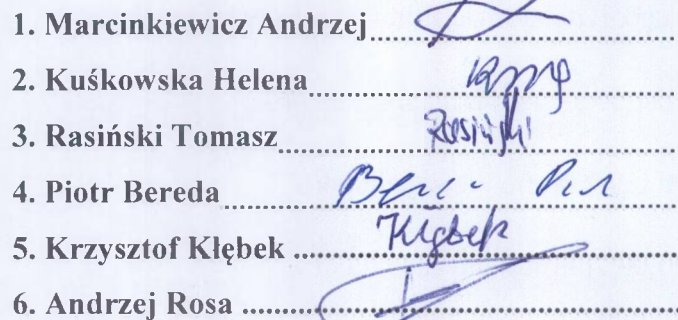 1. Marcinkiewicz Andrzej
2. Kuśkowska Helena
3. Rasiński Tomasz Rasiński
4. Piotr Bereda
5. Krzysztof Kłębek Kłębek
6. Andrzej Rosa